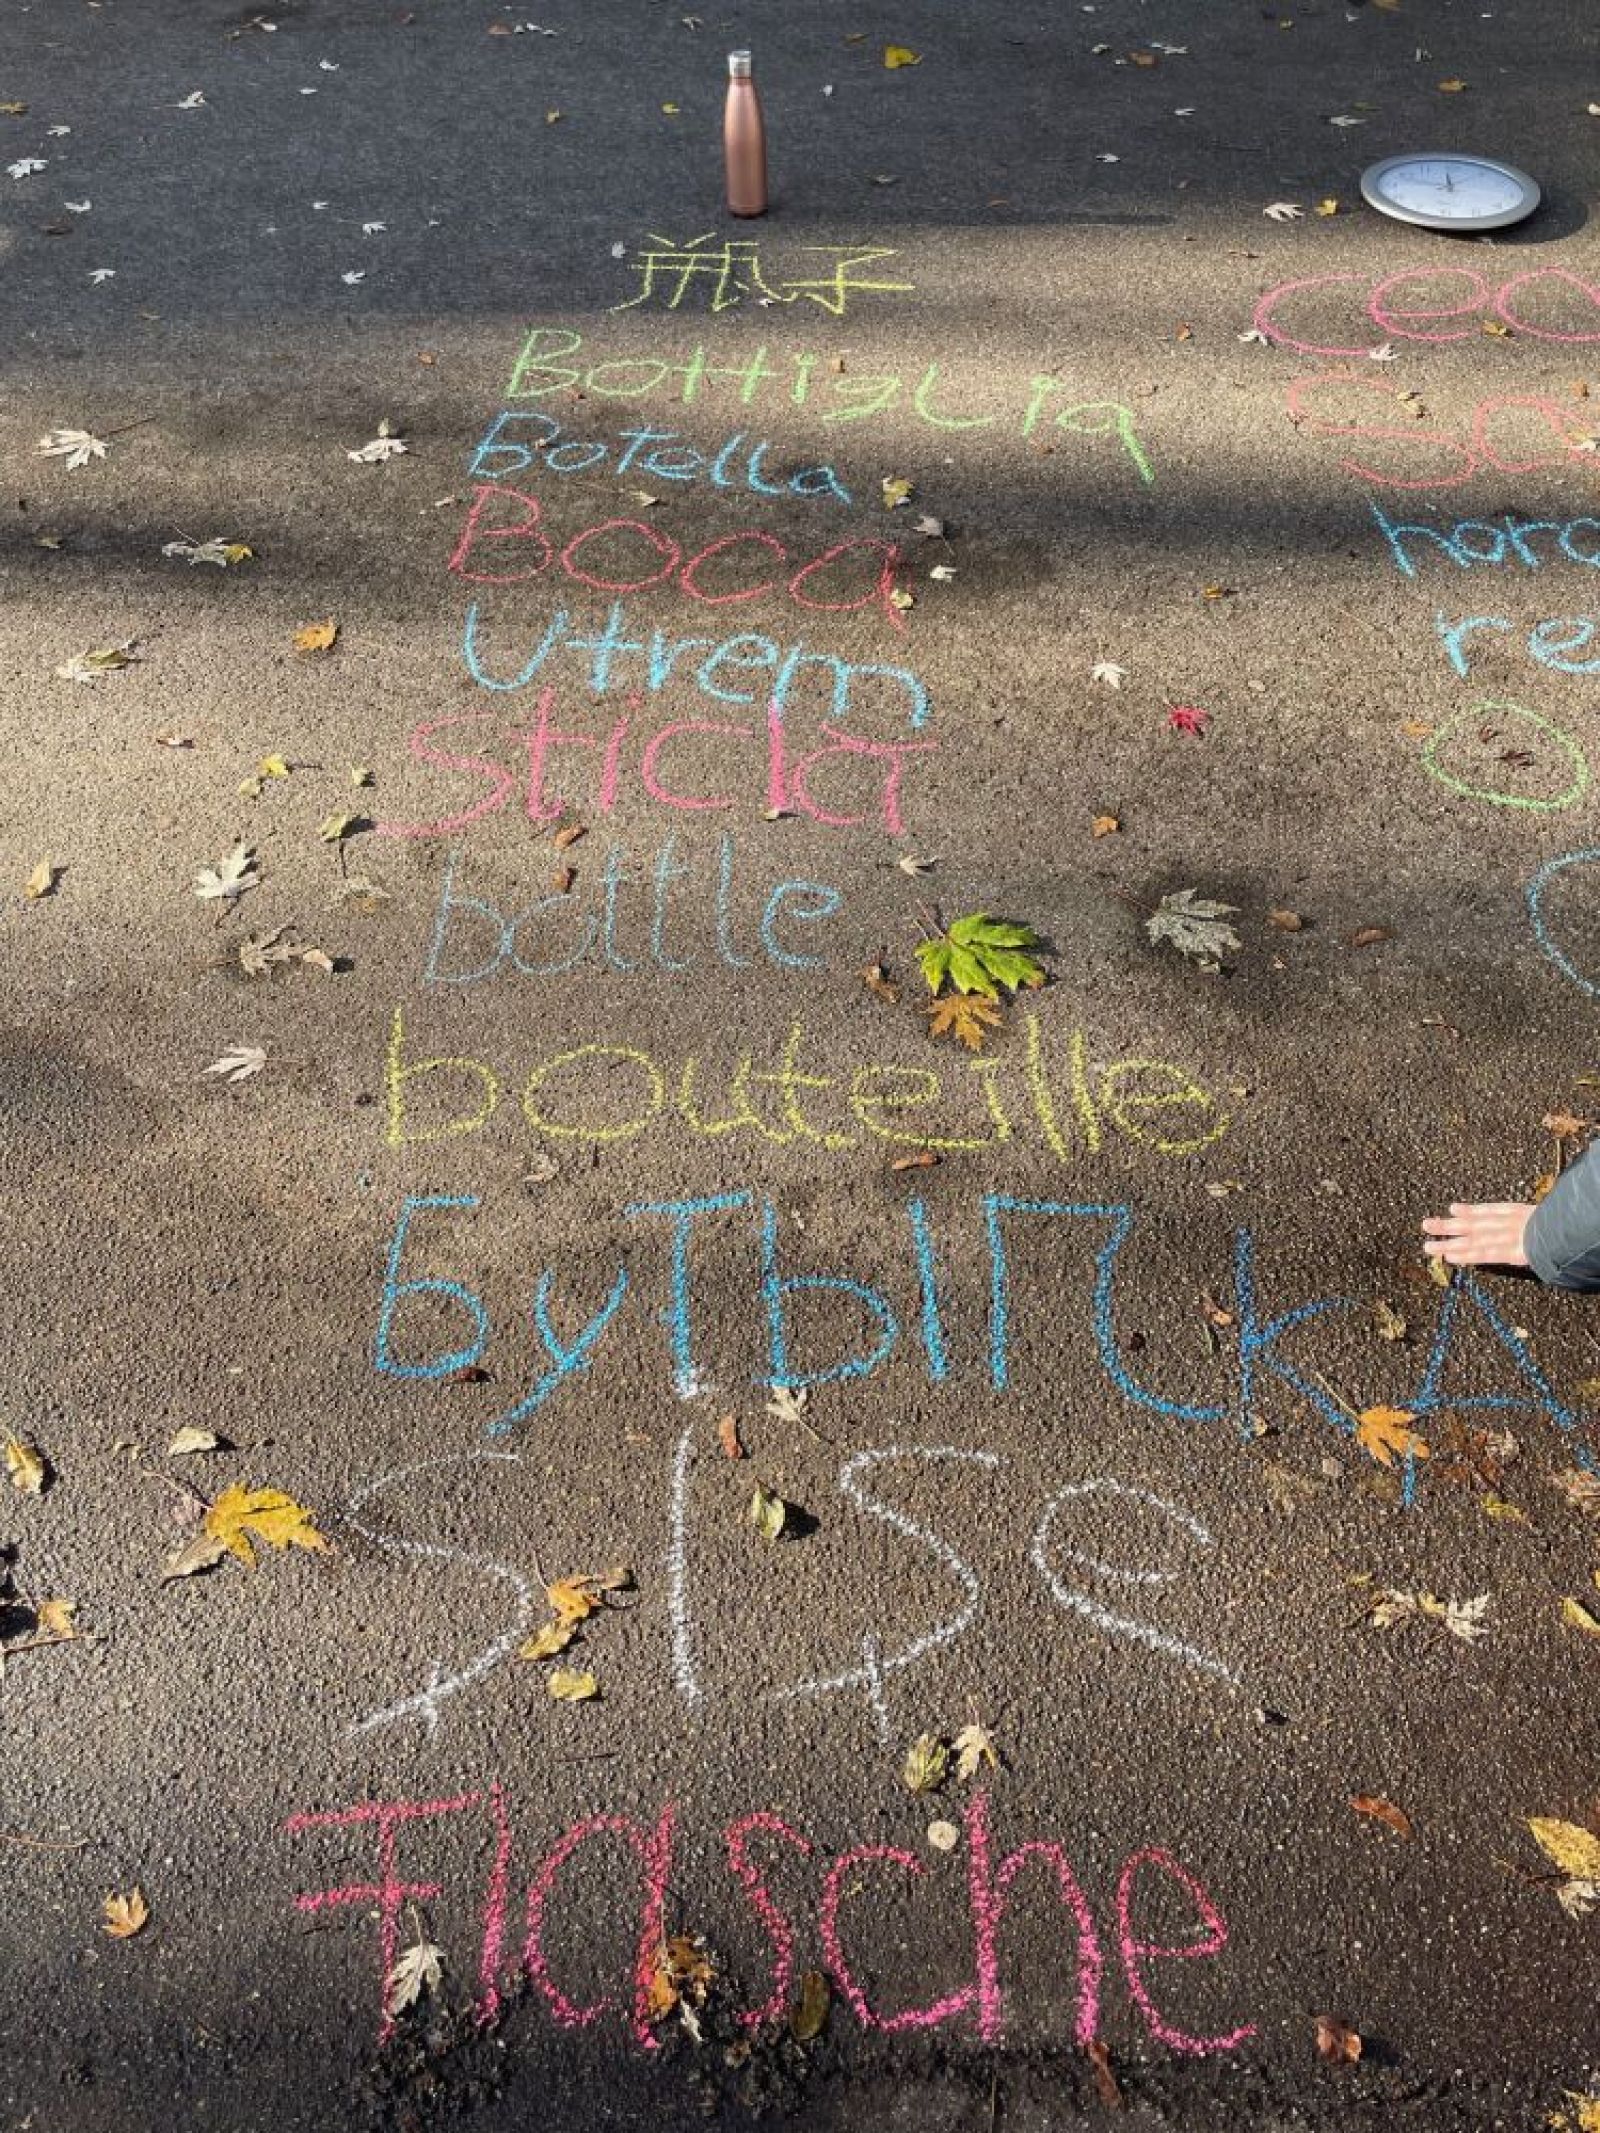 瓶子
Bottiglia
Botella
Boca
Utrem
sticla
bottle
bouteille
БУТЫПКА
Şişe
Flasche